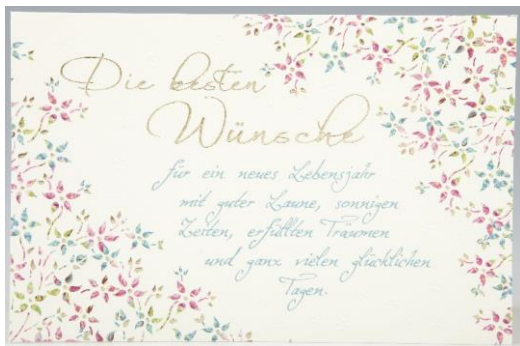 Die besten
Wünsche
für ein neues Lebensjahr
mit guter Laune, sonnigen
Zeiten, erfüllten Träumen
und ganz vielen glücklichen
Tagen.